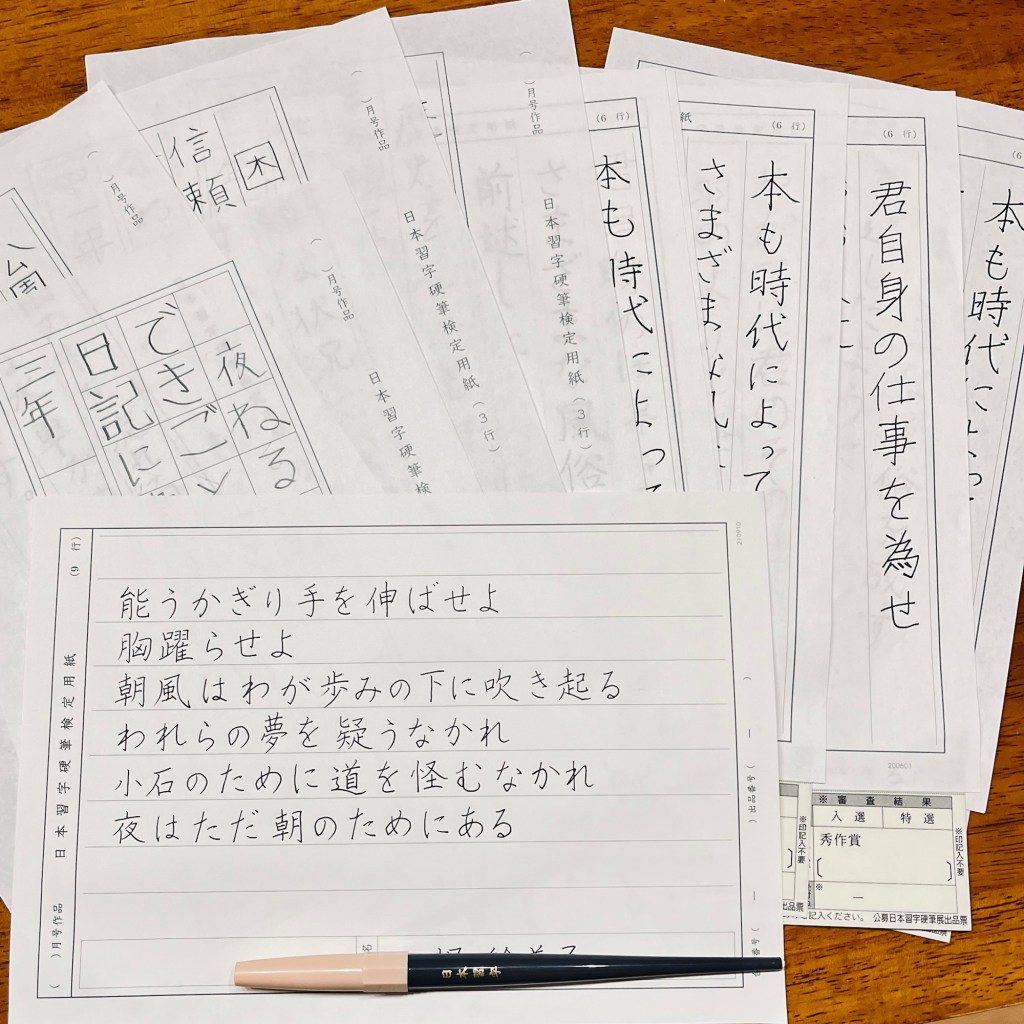 公
萬
信頼
木
夜ねる
できごと
日記に
三年
( )月号作品
( )月号作品
日本習字硬筆検定用紙
( )月号作品
日本習字硬筆検定用紙(3 行)
( )月号作品
日本習字硬筆検定用紙(3 行)
(6 行)
本も時代によって
紙
(6 行)
本も時代によって
さまざまな
(6 行)
君自身の仕事を為せ
200601
(6
本も時代によっ
210410
(9 行)
日本習字硬筆検定用紙
( )月号作品
能うかぎり手を伸ばせよ
胸躍らせよ
朝風はわが歩みの下に吹き起る
われらの夢を疑うなかれ
小石のために道を怪むなかれ
夜はただ朝のためにある
( ー ) 出品番号 ( ー )
日本習字
※審査結果
入選 特選
秀作賞
※
ー
※印記入不要
※印記入不要
ご記入ください。 公募日本習字硬筆展出品票
出品票